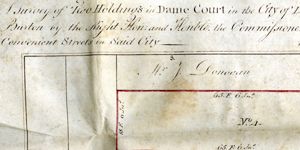 A Survey of Two Holdings in Dame Court in the City of
Burton by the Right Hon. and Honble. the Commissione
Convenient Streets in Said City
Mr. J. Donovan
65 F. 6 In.
No. 1
65 F. 6 In.